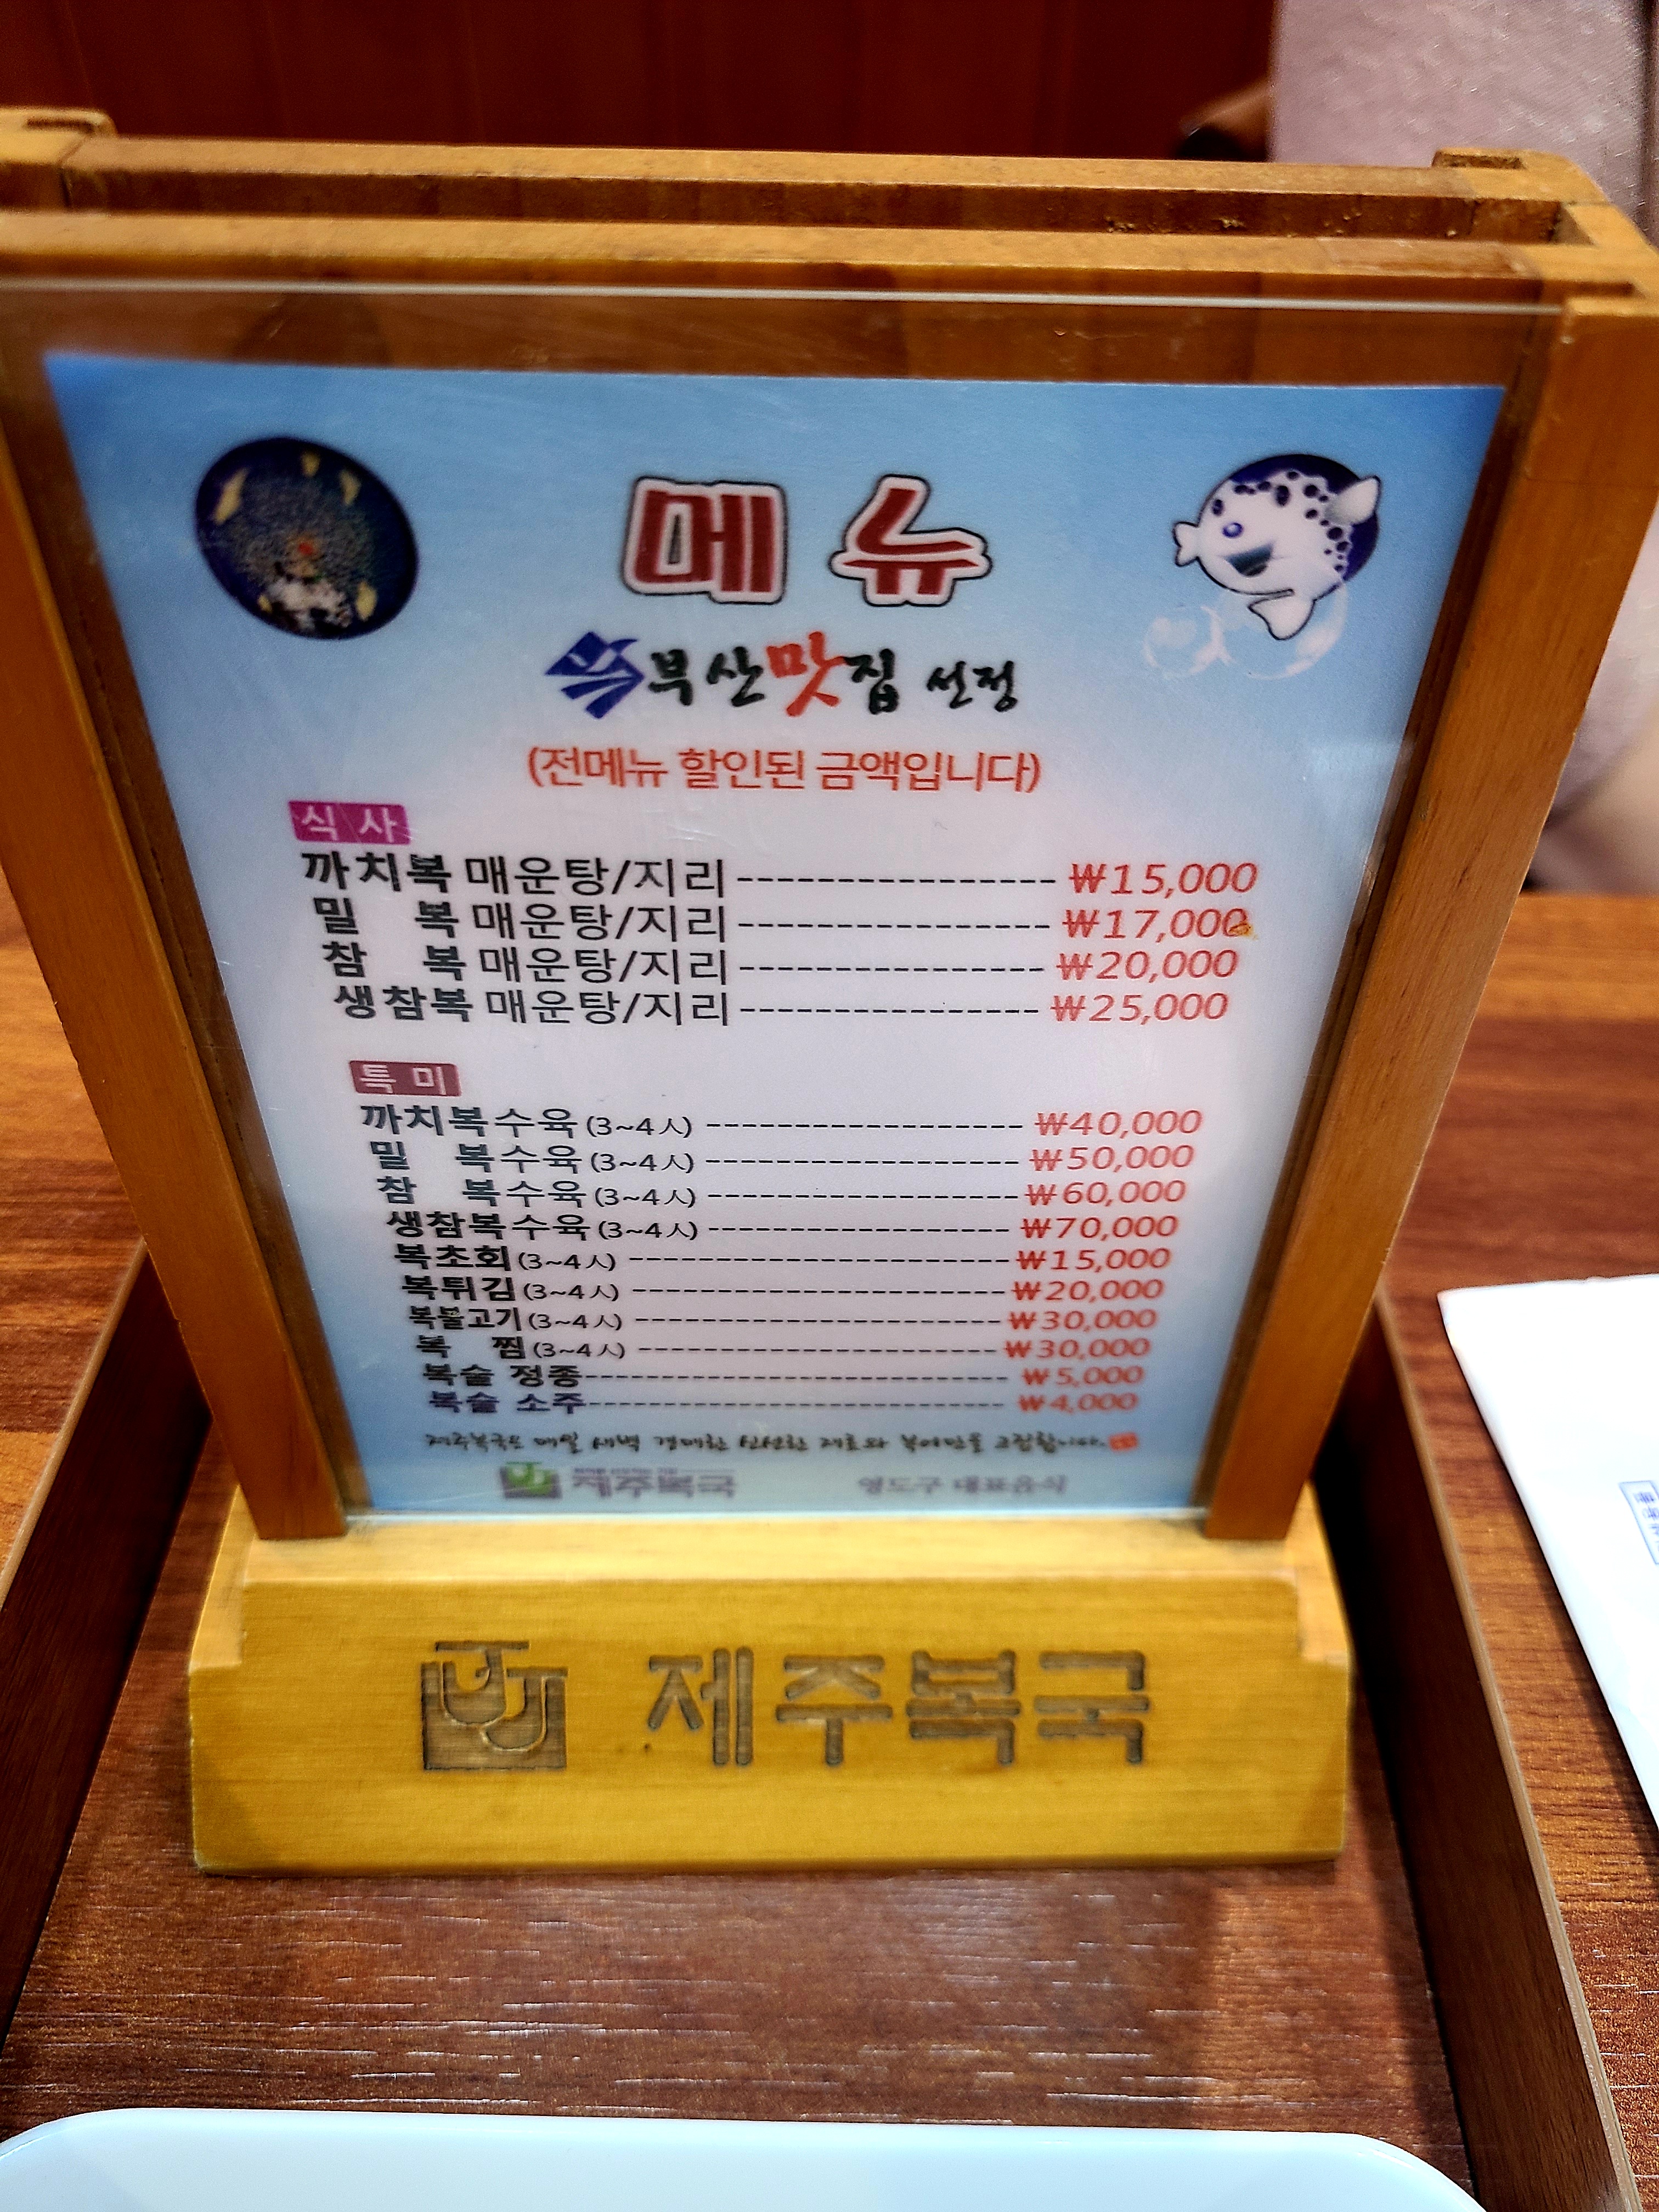 메뉴
부산맛집 선정
(전메뉴 할인된 금액입니다)
식 사
까치복 매운탕/지리 ---------------- ₩15,000
밀 복 매운탕/지리 ---------------- ₩17,000
참 복 매운탕/지리 ---------------- ₩20,000
생참복 매운탕/지리 ---------------- ₩25,000
특 미
까치복수육 (3~4人) ------------------ ₩40,000
밀 복수육 (3~4人) ------------------ ₩50,000
참 복수육 (3~4人) ------------------ ₩60,000
생참복수육 (3~4人) ------------------ ₩70,000
복초회 (3~4人) ---------------------- ₩15,000
복튀김 (3~4人) ---------------------- ₩20,000
복불고기 (3~4人) ---------------------- ₩30,000
복 찜 (3~4人) ---------------------- ₩30,000
복술 정종--------------------------- ₩5,000
복술 소주--------------------------- ₩4,000
제주복국은 매일 새벽 경매한 신선한 재료와 복어만을 고집합니다.
제주복국 영도구 대표음식
제주복국